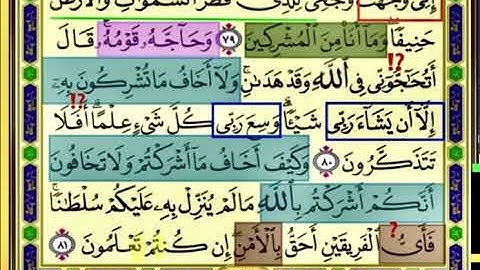 إِنِّى وَجَّهْتُ وَجْهِىَ لِلَّذِى فَطَرَ ٱلسَّمَـٰوَٰتِ وَٱلْأَرْضَ
حَنِيفًا ۖ وَمَآ أَنَا۠ مِنَ ٱلْمُشْرِكِينَ ٧٩ وَحَآجَّهُۥ قَوْمُهُۥ ۚ قَالَ
أَتُحَـٰٓجُّوٓنِّى فِى ٱللَّهِ وَقَدْ هَدَىٰنِ ۚ !? وَلَآ أَخَافُ مَا تُشْرِكُونَ بِهِۦٓ
إِلَّآ أَن يَشَآءَ رَبِّى شَيْـًٔا ۗ !? وَسِعَ رَبِّى كُلَّ شَىْءٍ عِلْمًا ۗ أَفَلَا
تَتَذَكَّرُونَ ٨٠ وَكَيْفَ أَخَافُ مَآ أَشْرَكْتُمْ وَلَا تَخَافُونَ
أَنَّكُمْ أَشْرَكْتُم بِٱللَّهِ مَا لَمْ يُنَزِّلْ بِهِۦ عَلَيْكُمْ سُلْطَـٰنًا ۚ
فَأَىُّ ? ٱلْفَرِيقَيْنِ أَحَقُّ بِٱلْأَمْنِ ۖ إِن كُنتُمْ تَعْلَمُونَ ٨١